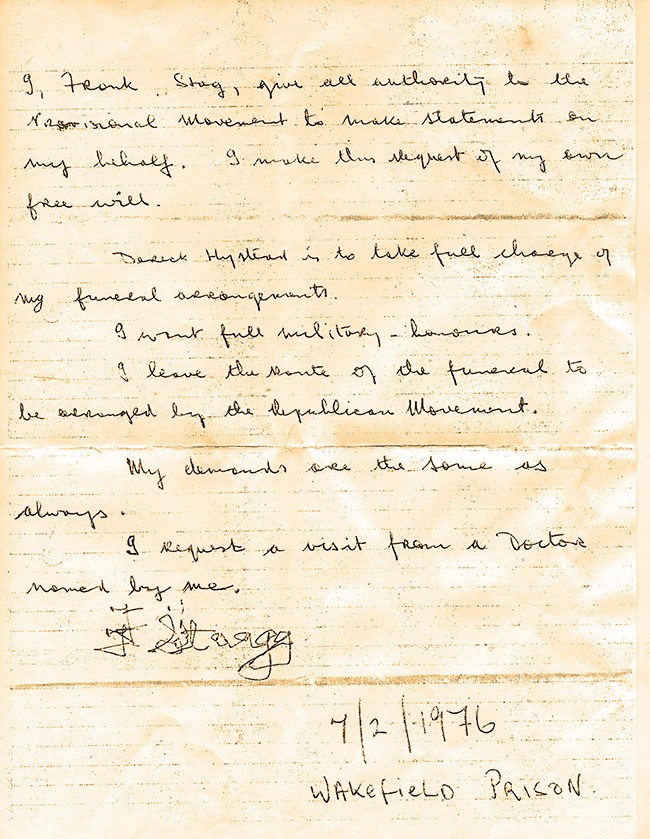 I, Frank Stag, give all authority to the
Provisional Movement to make statements on
my behalf. I make this request of my own
free will.
Dereck Hystead is to take full charge of
my funeral arrangements.
I want full military - honours.
I leave the route of the funeral to
be arranged by the Republican Movement.
My demands are the same as
always.
I request a visit from a Doctor
named by me.
F Stagg
7/2/1976
WAKEFIELD PRISON.